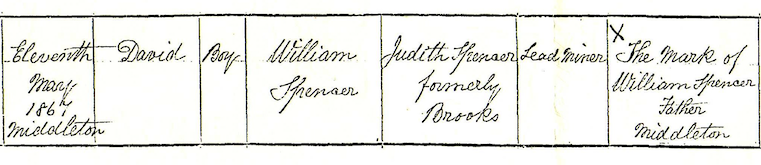 Eleventh
May
1867
Middleton
David
Boy
William
Spencer
Judith Spencer
formerly
Brooks
Lead Miner
X
The Mark of
William Spencer
Father
Middleton